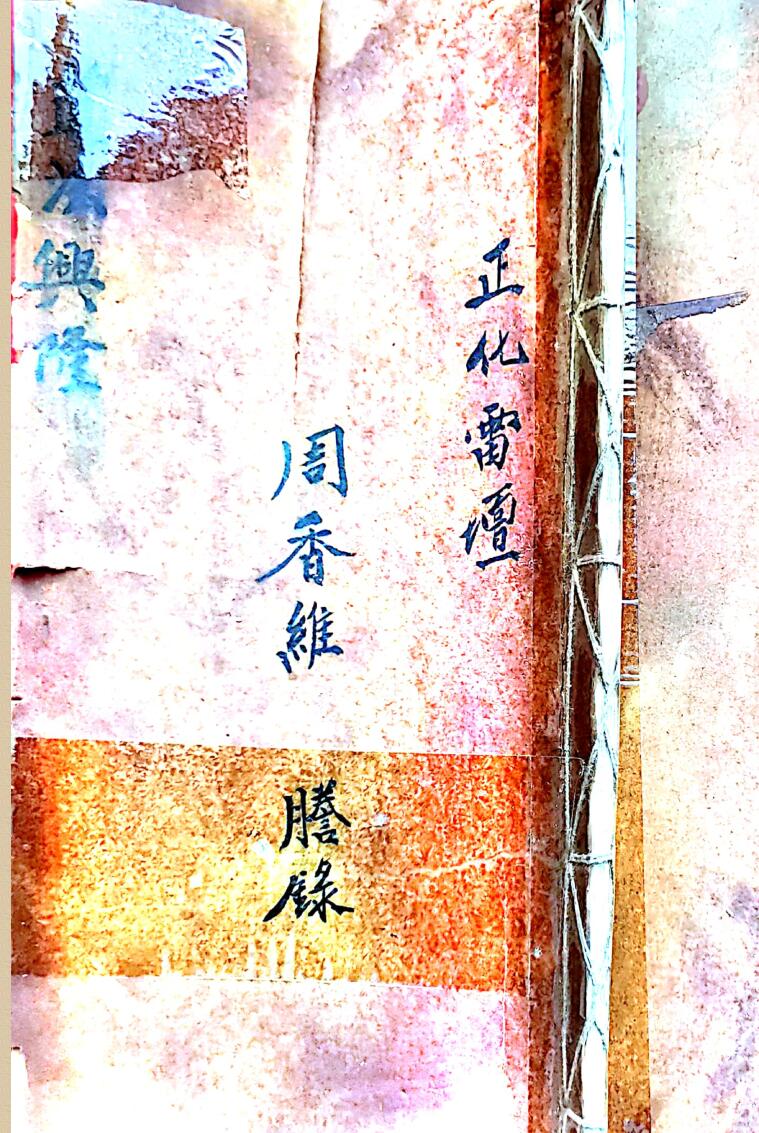 正化雷壇
周香維
謄錄
興隆